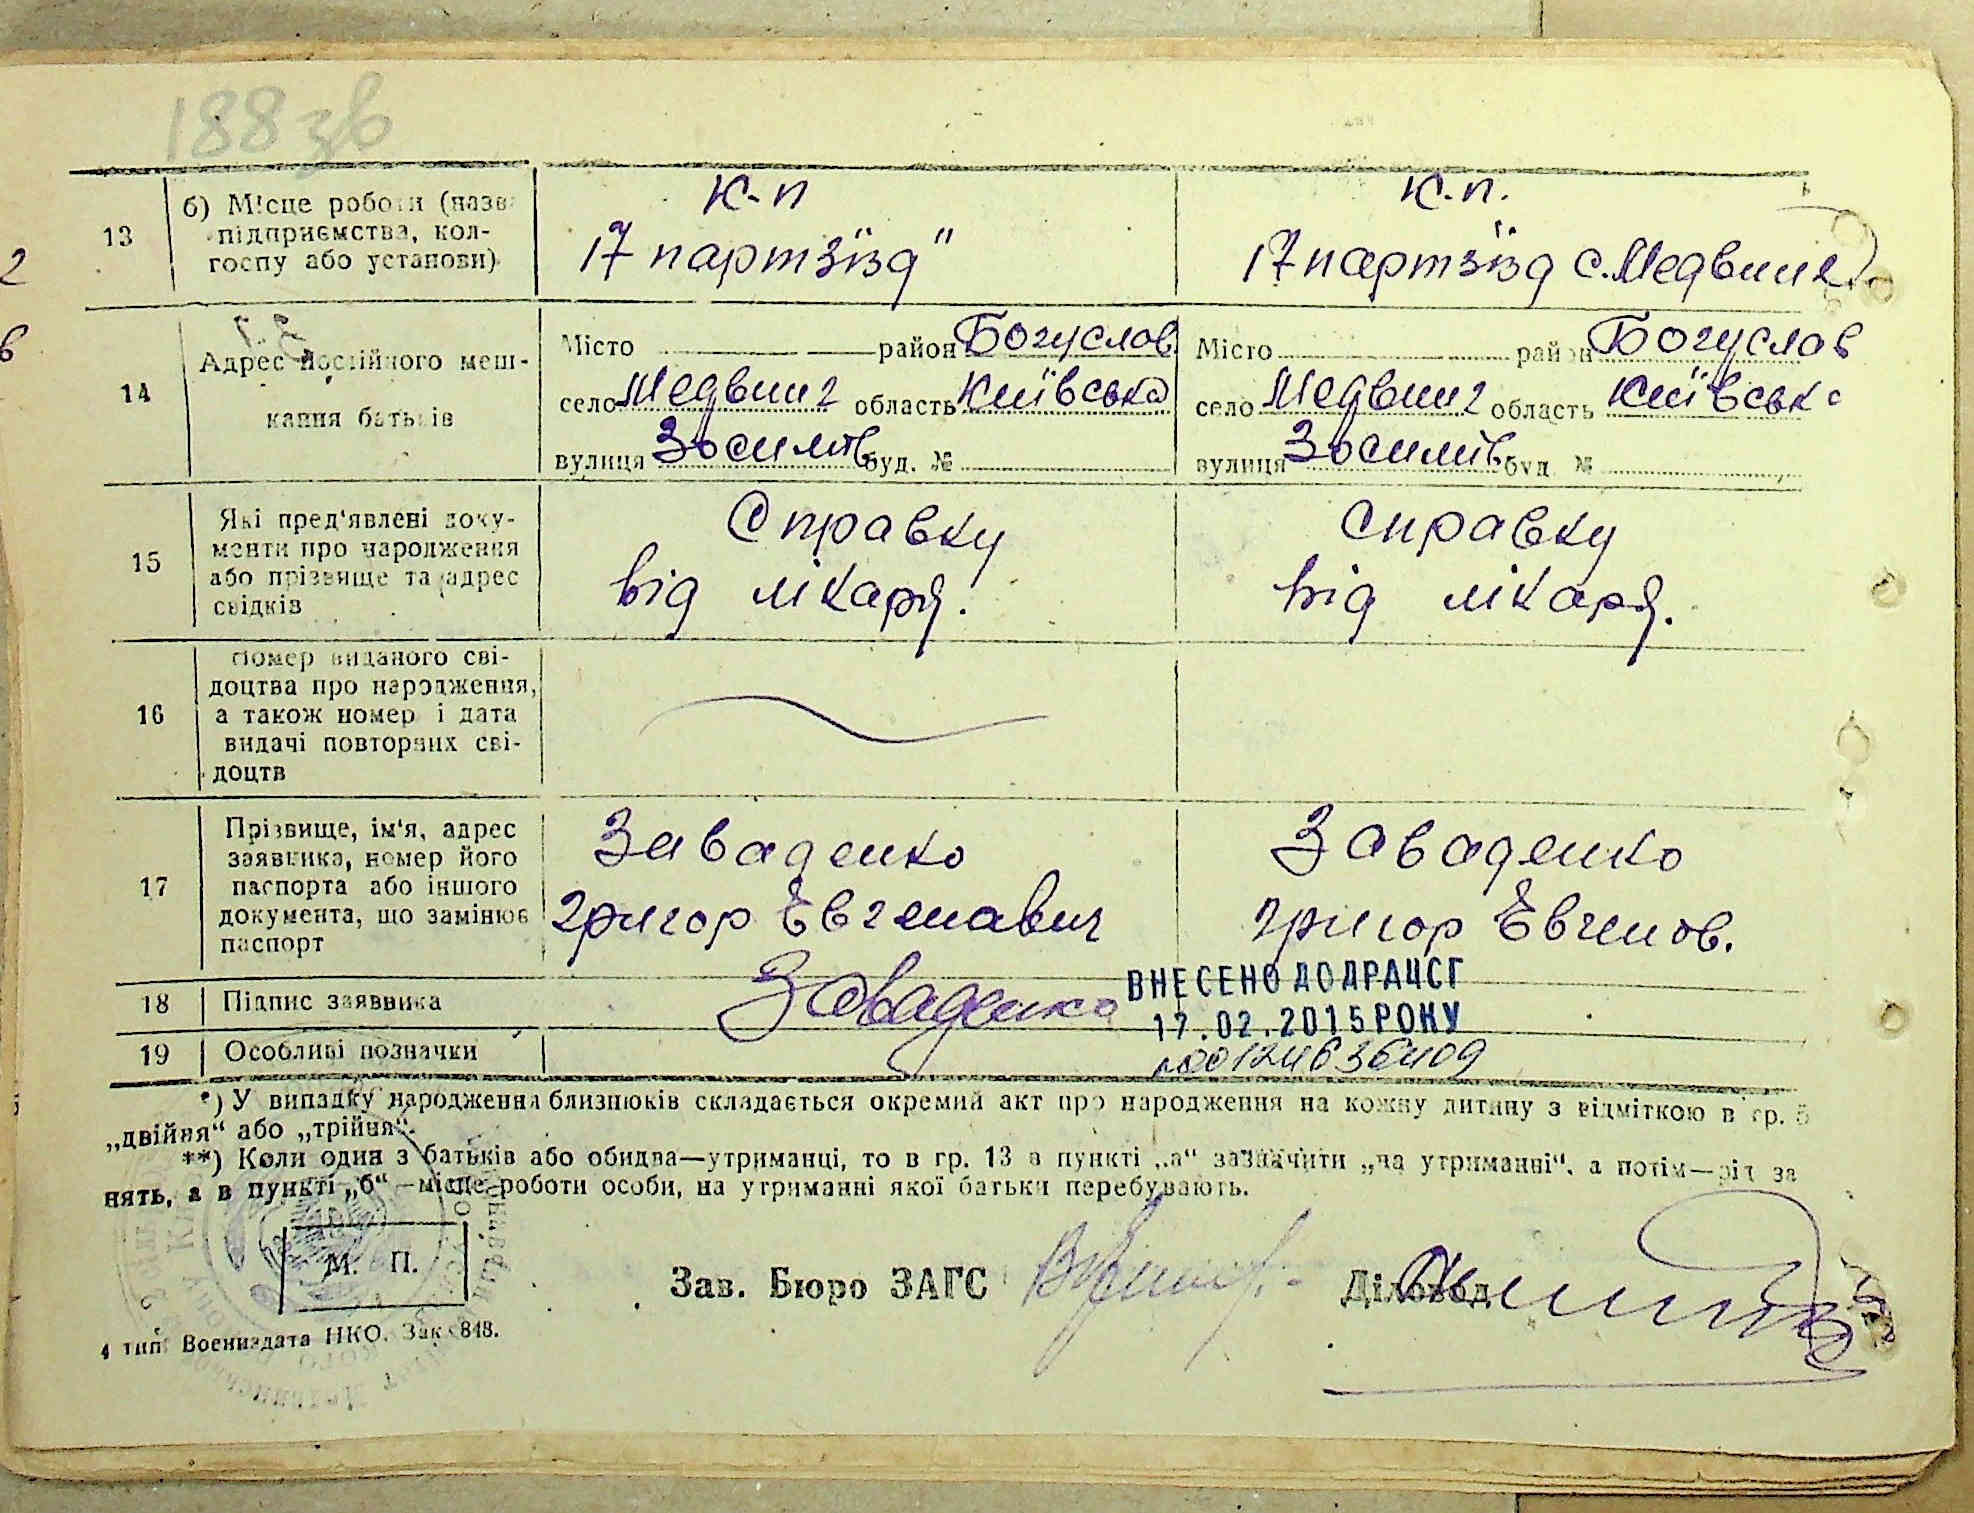 188 зв
13
б) Місце роботи (назва
підприємства, кол-
госпу або установи)
к-п
17 партз'їзд"
к.п.
17 партз'їзд с. Медвин
14
Адрес постійного меш-
кання батьків
Місто район Богуслав
село Медвин область Київська
вулиця Зосимів буд. №
Місто район Богуслав
село Медвин область Київська
вулиця Зосимів буд №
15
Які пред'явлені доку-
менти про народження
або прізвище та адрес
свідків
Справку
від лікаря.
Справку
від лікаря.
16
Номер виданого сві-
доцтва про народження,
а також номер і дата
видачі повторних сві-
доцтв
17
Прізвище, ім'я, адрес
заявника, номер його
паспорта або іншого
документа, що замінює
паспорт
Заваденко
Григор Евгенавич
Заваденко
Григор Евгенов.
18 Підпис заявника
Заваденко
ВНЕСЕНО ДО ДРАЦСГ
17.02.2015 РОКУ
19 Особливі позначки
*) У випадку народження близнюків складається окремий акт про народження на кожну дитину з відміткою в гр. 5
„двійня“ або „трійня“.
**) Коли один з батьків або обидва—утриманці, то в гр. 13 в пункті „а“ зазначити „на утриманні“, а потім—рід за
нять, а в пункті „б“—місце роботи особи, на утриманні якої батьки перебувають.
М. П.
Зав. Бюро ЗАГС
Діловод
4 тип. Воениздата НКО. Зак. 848.